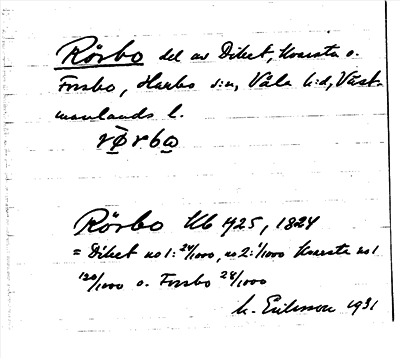 Rörbo del av Diket, Knarsta o.
Forsbo, Harbo s:n, Våla h:d, Väst-
manlands l.
rörbo
Rörbo Kb 425, 1824
= Diket no 1: 24/1000, no 2: 1/1000 Knarsta no 1
120/1000 o. Forsbo 28/1000
M. Eriksson 1931